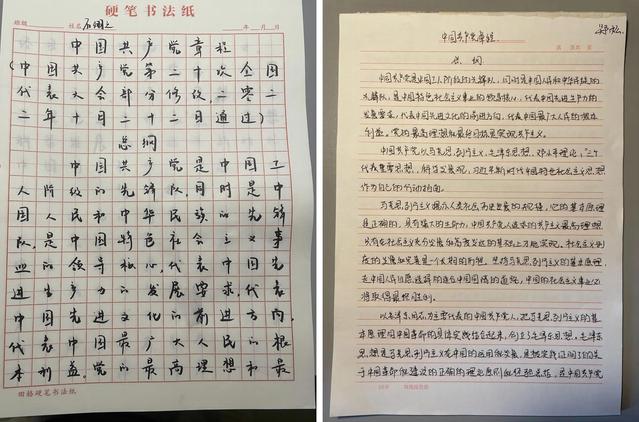 硬笔书法纸
班级 姓名 年 月 日
中国共产党章程
(中国共产党第二十次全国
代表大会部分修改 二零二
二年十月二十二日通过)
总纲
中国共产党是中国工
人阶级的先锋队,同时是中
国人民和中华民族的先锋
队,是中国特色社会主义事
业的领导核心,代表中国先
进生产力的发展要求,代表
中国先进文化的前进方向,
代表中国最广大人民的根
本利益。党的最高理想和最
田格硬笔书法纸
中国共产党章程
总纲
中国共产党是中国工人阶级的先锋队,同时是中国人民和中华民族的
先锋队,是中国特色社会主义事业的领导核心,代表中国先进生产力的
发展要求,代表中国先进文化的前进方向,代表中国最广大人民的根本
利益。党的最高理想和最终目标是实现共产主义。
中国共产党以马克思列宁主义、毛泽东思想、邓小平理论、“三个
代表”重要思想、科学发展观、习近平新时代中国特色社会主义思想
作为自己的行动指南。
马克思列宁主义揭示人类社会历史发展的规律,它的基本原理
是正确的,具有强大的生命力。中国共产党人追求的共产主义最高理想,
只有在社会主义充分发展和高度发达的基础上才能实现。社会主义制
度的发展和完善是一个长期的历程。坚持马克思列宁主义的基本原理,
走中国人民自愿选择的适合中国国情的道路,中国的社会主义事业必
将取得最终胜利。
以毛泽东同志为主要代表的中国共产党人,把马克思列宁主义的基
本原理同中国革命的具体实践结合起来,创立了毛泽东思想。毛泽东
思想是马克思列宁主义在中国的运用和发展,是被实践证明了的关
于中国革命和建设的正确的理论原则和经验总结,是中国共产党